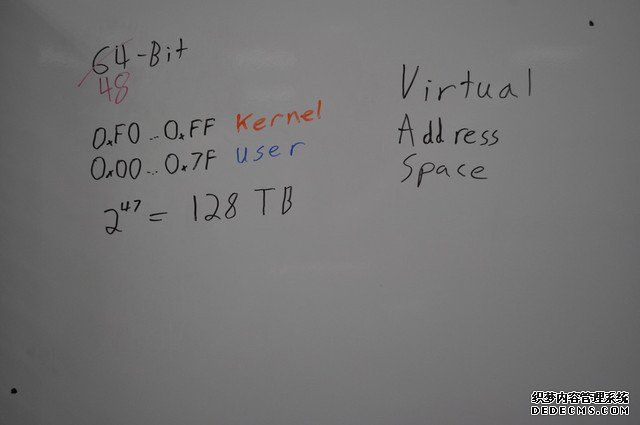 64-Bit
48
0xF0...0xFF Kernel
0x00...0x7F user
2^47 = 128 TB
Virtual
Address
Space
织梦内容管理系统
DEDECMS.COM